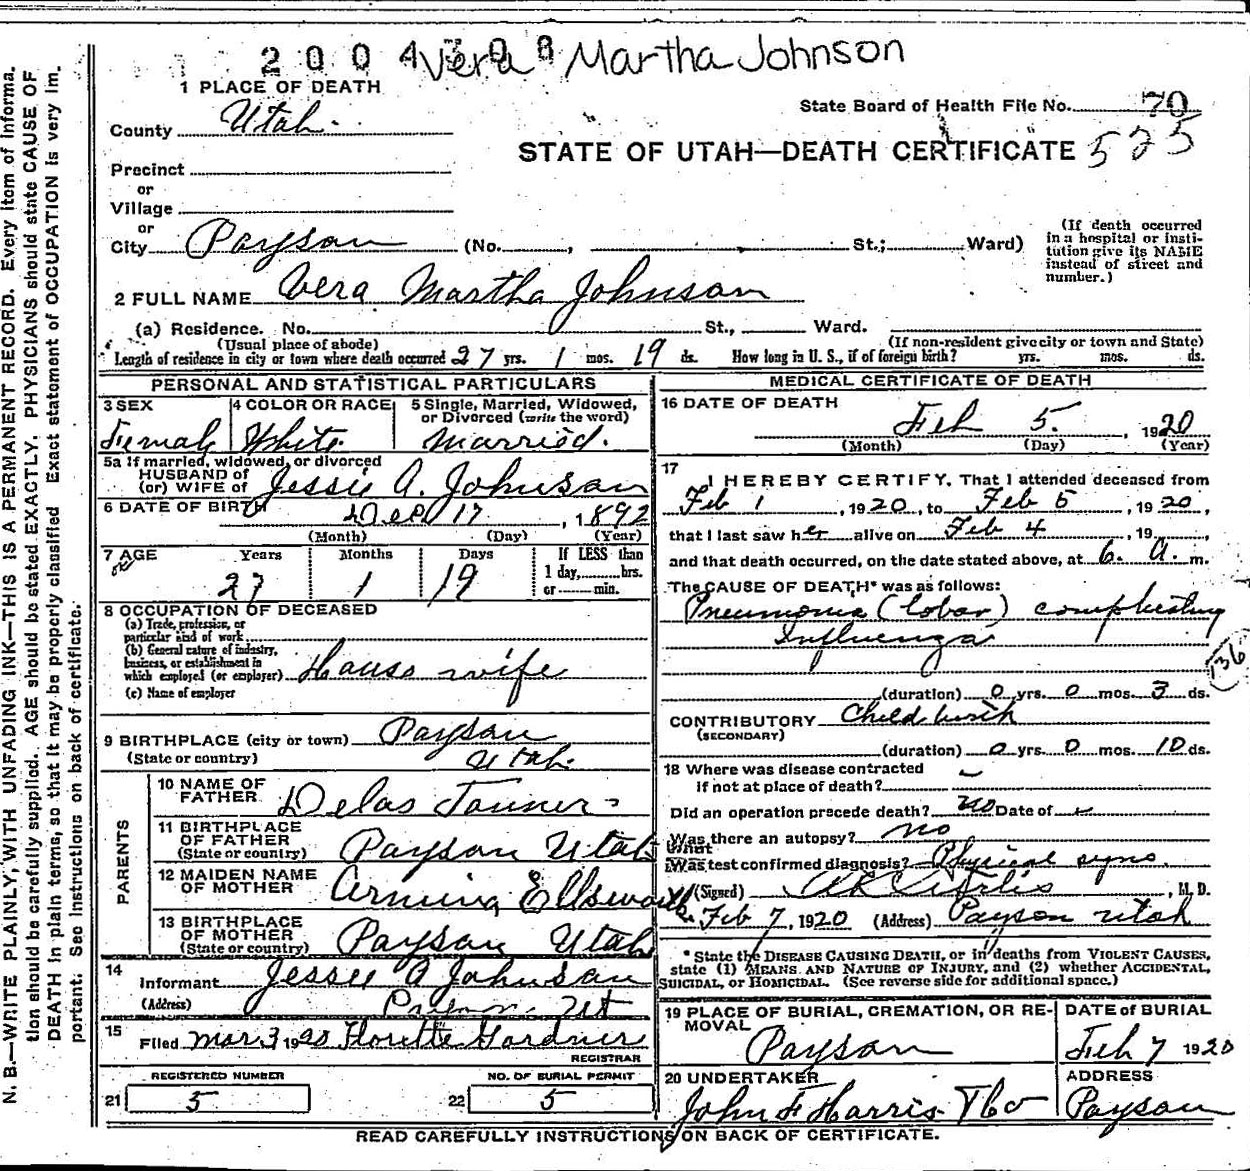 2004308 Vera Martha Johnson
1 PLACE OF DEATH
State Board of Health File No. 70
County Utah
STATE OF UTAH—DEATH CERTIFICATE 525
Precinct
or
Village
or
City Payson (No. , St.; Ward)
(If death occurred in a hospital or insti-
tution give its NAME
instead of street and
number.)
2 FULL NAME Vera Martha Johnson
(a) Residence. No. St., Ward.
(Usual place of abode) (If non-resident give city or town and State)
Length of residence in city or town where death occurred 27 yrs. 1 mos. 19 ds. How long in U. S., if of foreign birth? yrs. mos. ds.
PERSONAL AND STATISTICAL PARTICULARS
3 SEX Female
4 COLOR OR RACE White
5 Single, Married, Widowed,
or Divorced (write the word)
Married.
5a If married, widowed, or divorced
HUSBAND of
(or) WIFE of Jessie A. Johnson
6 DATE OF BIRTH Dec 17, 1892
(Month) (Day) (Year)
7 AGE Years Months Days If LESS than
27 1 19 1 day, hrs.
or min.
8 OCCUPATION OF DECEASED
(a) Trade, profession, or
particular kind of work
(b) General nature of industry,
business, or establishment in
which employed (or employer) House wife
(c) Name of employer
9 BIRTHPLACE (city or town) Payson
(State or country) Utah
PARENTS
10 NAME OF
FATHER Delos Tanner
11 BIRTHPLACE
OF FATHER Payson Utah
(State or country)
12 MAIDEN NAME
OF MOTHER Ellsworth
13 BIRTHPLACE
OF MOTHER Payson Utah
(State or country)
14
Informant Jessie A Johnson
(Address) Payson Ut
15
Filed Mar 3 1920 Florette Gardner
REGISTRAR
REGISTERED NUMBER NO. OF BURIAL PERMIT
21 5 22 5
MEDICAL CERTIFICATE OF DEATH
16 DATE OF DEATH
Feb 5. , 1920
(Month) (Day) (Year)
17
I HEREBY CERTIFY, That I attended deceased from
Feb 1 , 1920, to Feb 5 , 1920,
that I last saw her alive on Feb 4 , 19 ,
and that death occurred, on the date stated above, at 6. A. m.
The CAUSE OF DEATH* was as follows:
Pneumonia (Lobar) complicating
Influenza
136
(duration) 0 yrs. 0 mos. 3 ds.
CONTRIBUTORY Child birth
(SECONDARY)
(duration) 0 yrs. 0 mos. 10 ds.
18 Where was disease contracted
if not at place of death?
Did an operation precede death? No Date of
Was there an autopsy? no
What
Was test confirmed diagnosis? Physical signs
(Signed) , M. D.
Feb 7, 1920 (Address) Payson Utah
* State the DISEASE CAUSING DEATH, or in deaths from VIOLENT CAUSES,
state (1) MEANS AND NATURE OF INJURY, and (2) whether ACCIDENTAL,
SUICIDAL, or HOMICIDAL. (See reverse side for additional space.)
19 PLACE OF BURIAL, CREMATION, OR RE-
MOVAL
Payson
DATE of BURIAL
Feb 7 1920
20 UNDERTAKER
John F Harris
ADDRESS
Payson
READ CAREFULLY INSTRUCTIONS ON BACK OF CERTIFICATE.
N. B.—WRITE PLAINLY, WITH UNFADING INK—THIS IS A PERMANENT RECORD. Every item of informa-
tion should be carefully supplied. AGE should be stated EXACTLY. PHYSICIANS should state CAUSE OF
DEATH in plain terms, so that it may be properly classified Exact statement of OCCUPATION is very im-
portant: See Instructions on back of certificate.